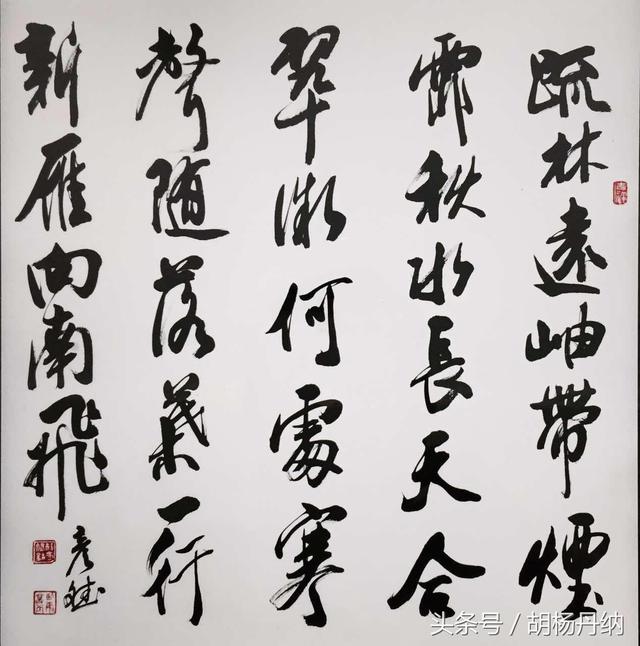 疏林遠岫帶煙
霏秋水長天合
翠微何處寒
聲随落葉一行
新雁向南飛
彦斌
头条号 / 胡杨丹纳